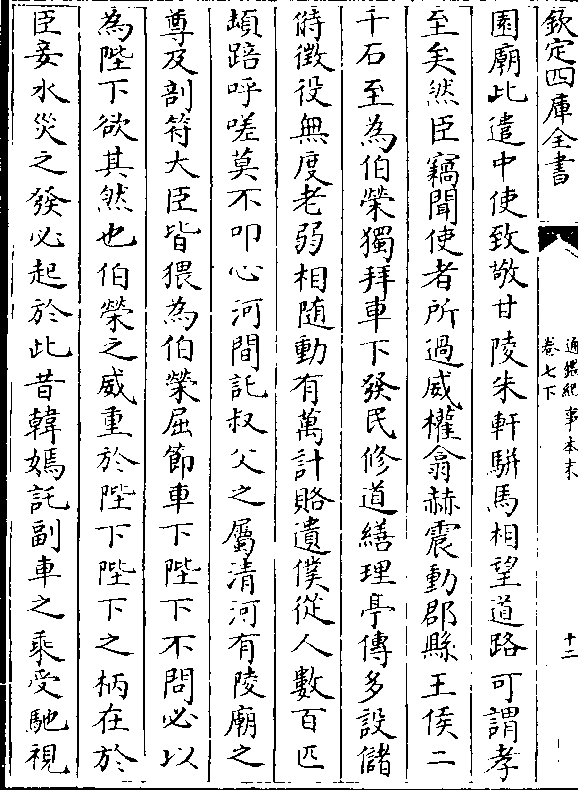 欽定四庫全書
通鑑紀事本末
卷七下
十二
園廟比遣中使致敬甘陵朱軒駢馬相望道路可謂孝
至矣然臣竊聞使者所過威權翕赫震動郡縣王侯二
千石至為伯榮獨拜車下發民修道繕理亭傳多設儲
偫徵役無度老弱相随動有萬計賂遺僕從人數百匹
頓踣呼嗟莫不叩心河間託叔父之屬清河有陵廟之
尊及剖符大臣皆猥為伯榮屈節車下陛下不問必以
為陛下欲其然也伯榮之威重於陛下陛下之柄在於
臣妾水災之發必起於此昔韓嫣託副車之乘受馳視